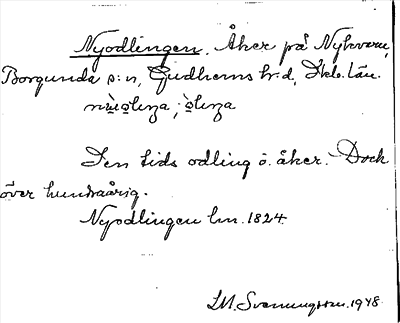 Nyodlingen. Åker på Nykvarn,
Borgunda s:n, Gudhems h:d, Skb. Län.
Den tids odling o. åker. Dock
över hundraårig.
Nyodlingen lm. 1824.
I.M. Svenungsson. 1948